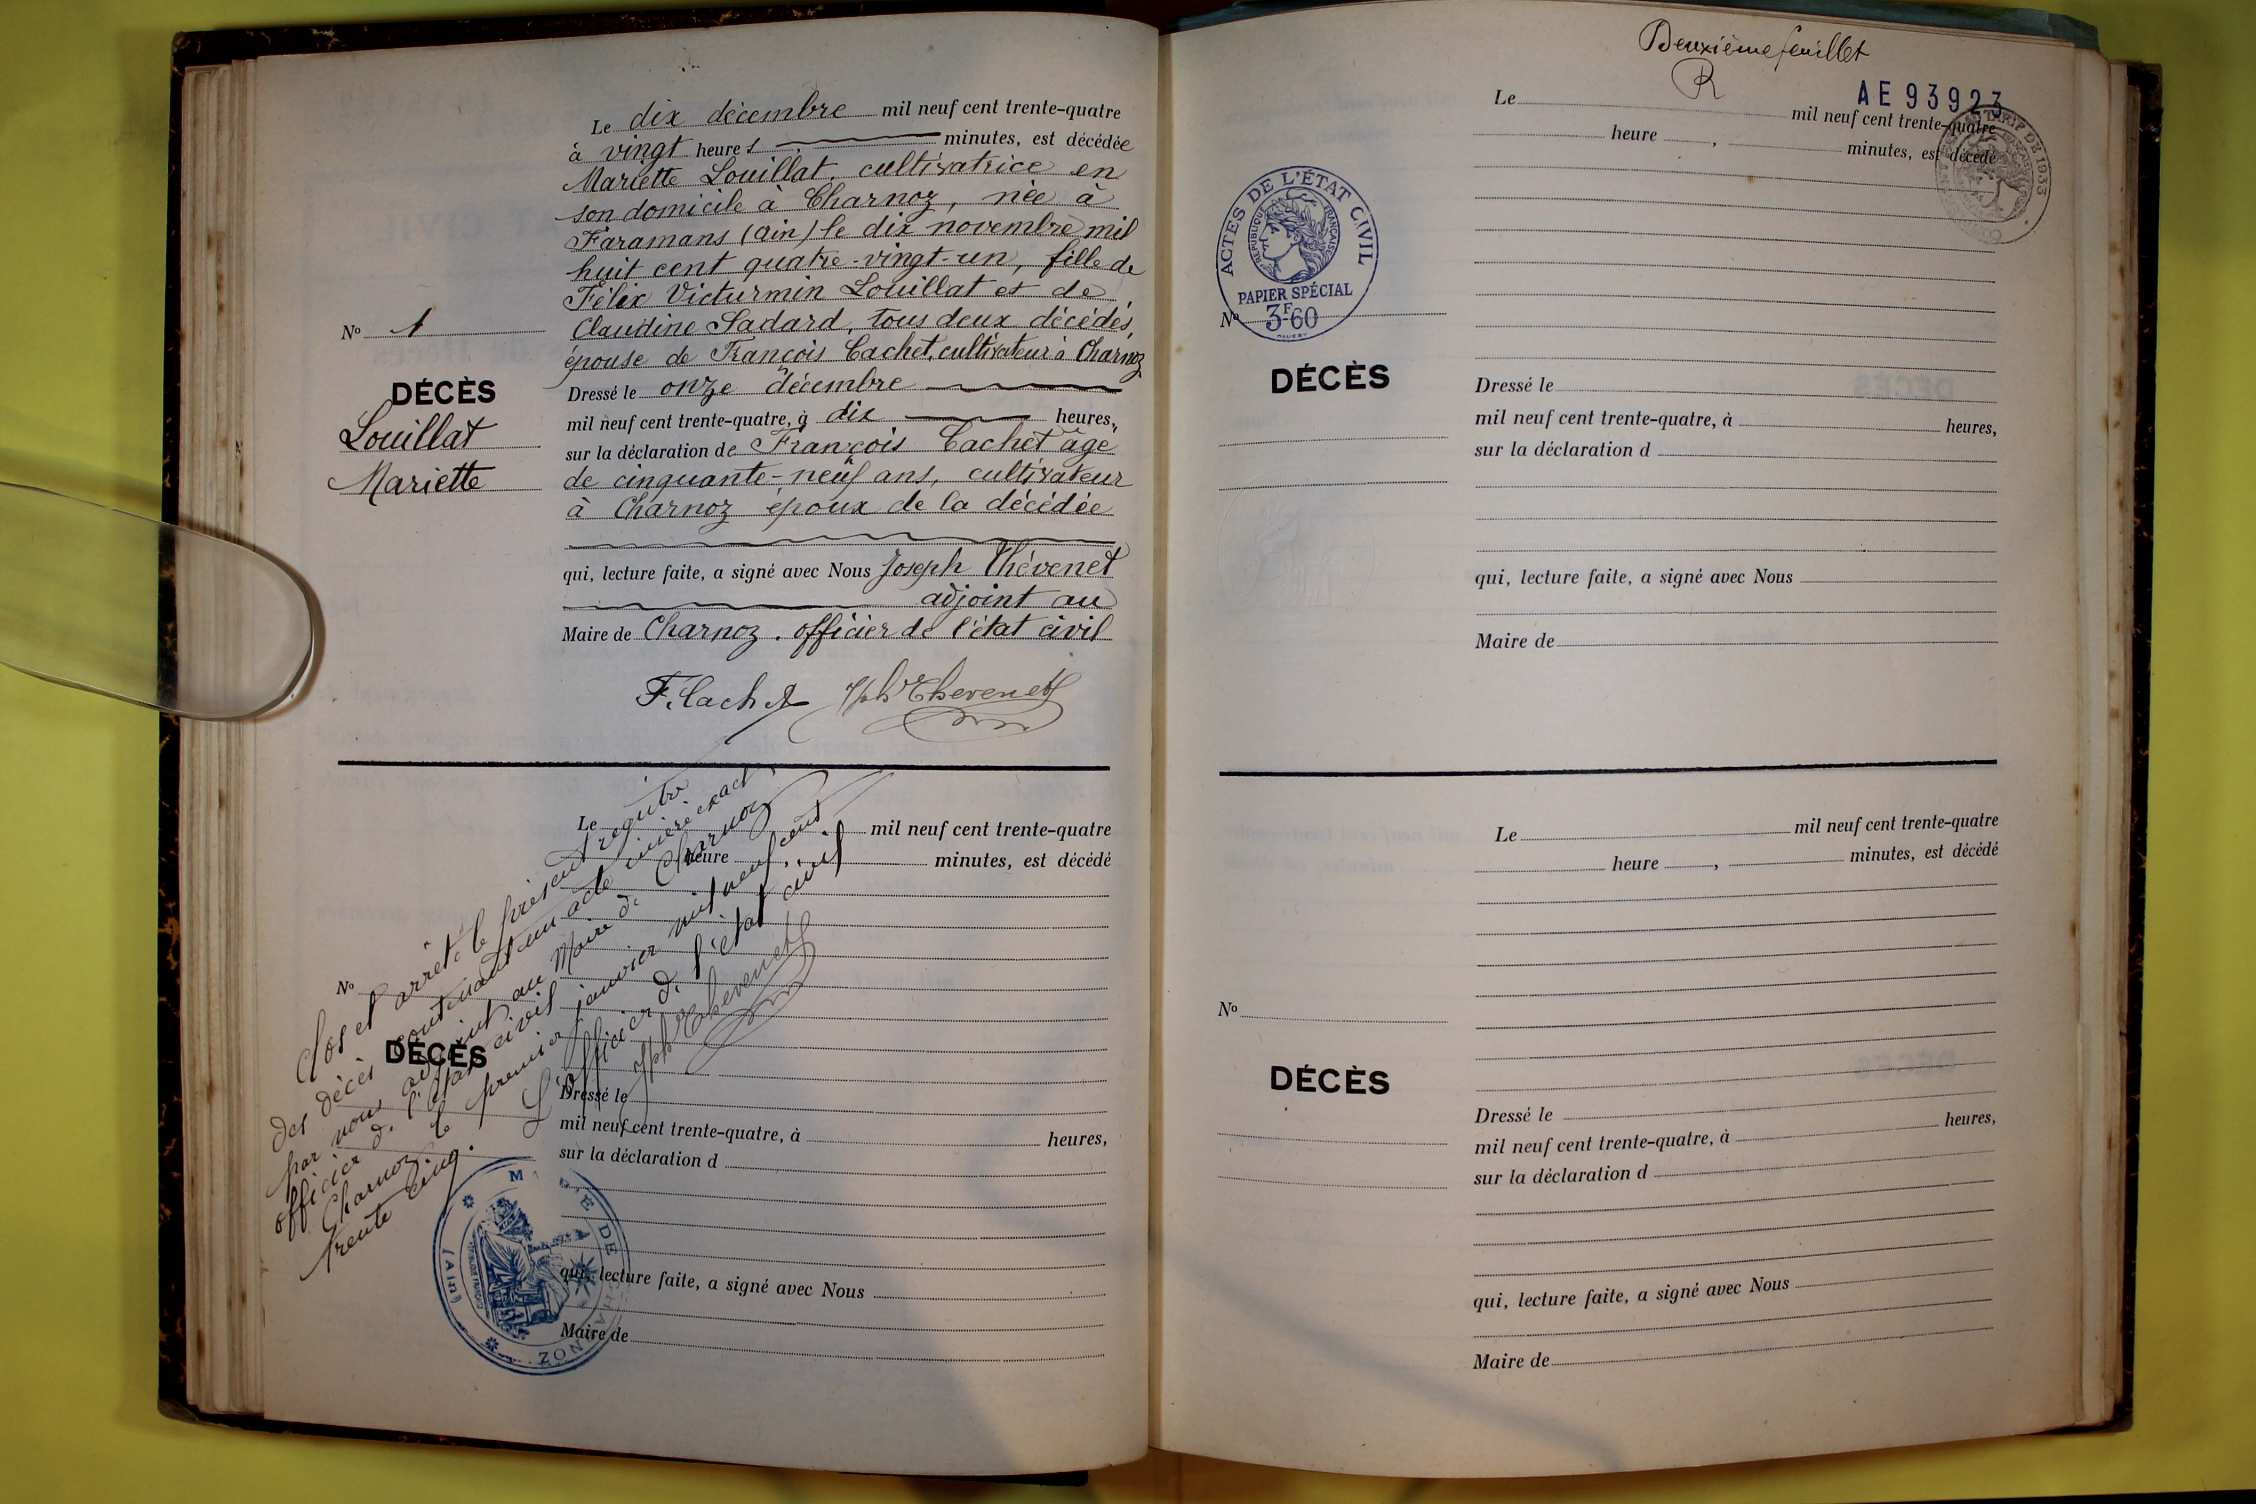 Le dix décembre mil neuf cent trente-quatre
à vingt heures , minutes, est décédée
Mariette Louillat, cultivatrice en
son domicile à Charnoz, née à
Faramans (Ain) le dix novembre mil
huit cent quatre-vingt-un, fille de
Félix Victurmin Louillat et de
Claudine Sadard, tous deux décédés,
épouse de François Cachet, cultivateur à Charnoz
Dressé le onze décembre
mil neuf cent trente-quatre, à dix heures,
sur la déclaration de François Cachet âgé
de cinquante-neuf ans, cultivateur
à Charnoz époux de la décédée
qui, lecture faite, a signé avec Nous Joseph Thévenet
adjoint au
Maire de Charnoz. officier de l'état civil
F. Cachet Jph Thevenet
No 1
DÉCÈS
Louillat
Mariette
Le mil neuf cent trente-quatre
heure , minutes, est décédé
No
DÉCÈS
Dressé le
mil neuf cent trente-quatre, à heures,
sur la déclaration d
qui, lecture faite, a signé avec Nous
Maire de
Clos et arrêté le présent registre
des décès contenant un acte
par nous adjoint au Maire de Charnoz
officier de l'état civil
Charnoz le premier janvier mil neuf cent
trente cinq.
L'officier de l'état civil
Jph Thevenet
(AIN)
Deuxième feuillet
R
AE 93923
Le mil neuf cent trente-quatre
heure , minutes, est décédé
ACTES DE L'ÉTAT CIVIL
RÉPUBLIQUE FRANÇAISE
PAPIER SPÉCIAL
3F60
No
DÉCÈS
Dressé le
mil neuf cent trente-quatre, à heures,
sur la déclaration d
qui, lecture faite, a signé avec Nous
Maire de
Le mil neuf cent trente-quatre
heure , minutes, est décédé
No
DÉCÈS
Dressé le
mil neuf cent trente-quatre, à heures,
sur la déclaration d
qui, lecture faite, a signé avec Nous
Maire de